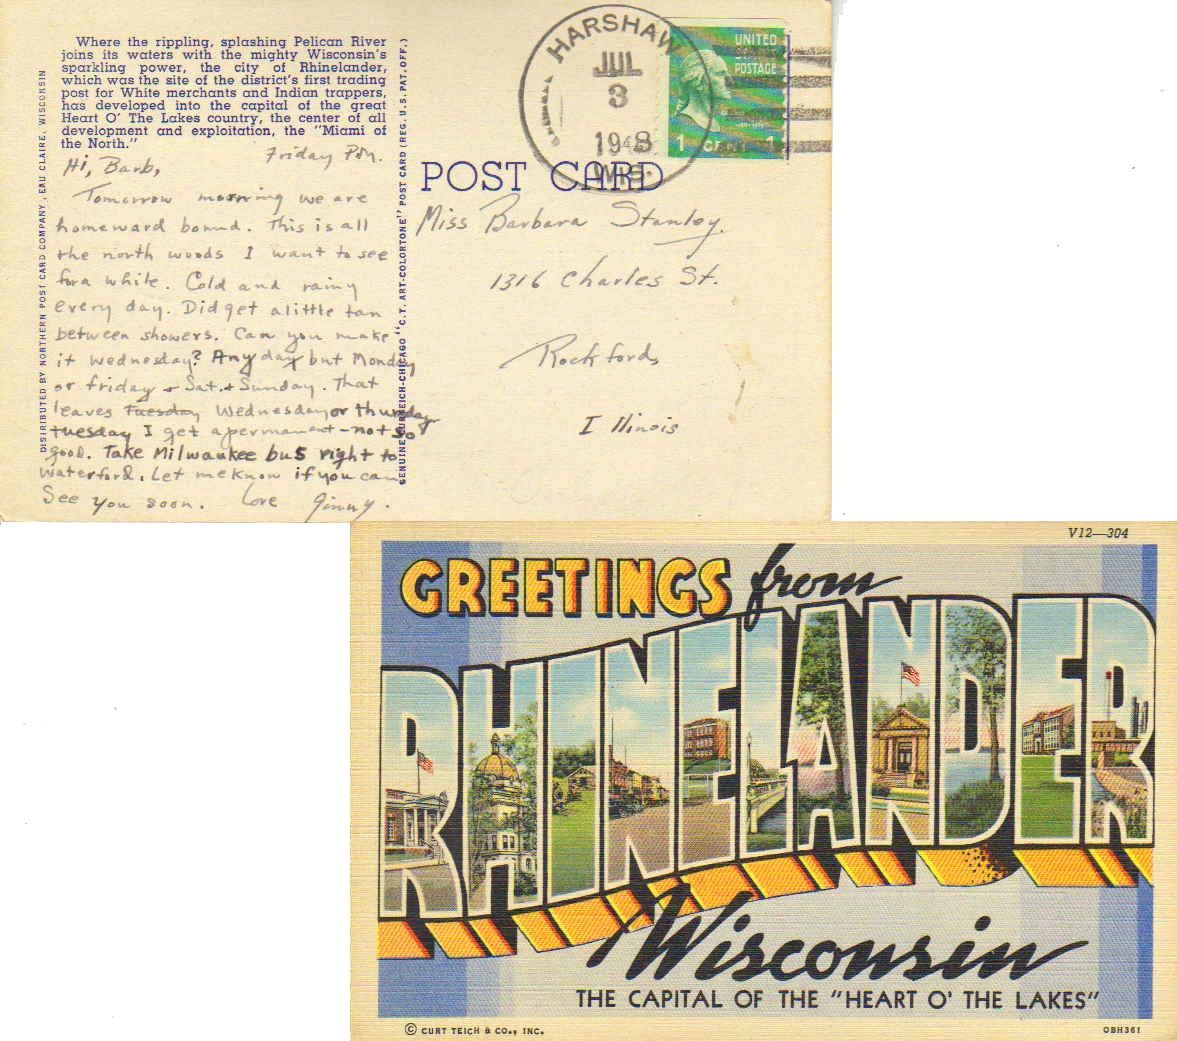 Where the rippling, splashing Pelican River
joins its waters with the mighty Wisconsin's
sparkling power, the city of Rhinelander,
which was the site of the district's first trading
post for White merchants and Indian trappers,
has developed into the capital of the great
Heart O' The Lakes country, the center of all
development and exploitation, the "Miami of
the North."
DISTRIBUTED BY NORTHERN POST CARD COMPANY, EAU CLAIRE, WISCONSIN
Friday P.M.
Hi, Barb,
Tomorrow morning we are
homeward bound. This is all
the north woods I want to see
for a while. Cold and rainy
every day. Did get a little tan
between showers. Can you make
it Wednesday? Any day but Monday
or friday + Sat. + Sunday. That
leaves Tuesday Wednesday or thursday
tuesday I get a permanent - not so
good. Take Milwaukee bus right to
Waterford. Let me know if you can
See you soon. Love Ginny.
GENUINE CURTEICH-CHICAGO "C.T. ART-COLORTONE" POST CARD (REG. U.S. PAT. OFF.)
HARSHAW
JUL
3
1948
WIS.
UNITED
STATES
POSTAGE
1 CENT 1
POST CARD
Miss Barbara Stanley.
1316 Charles St.
Rockford,
Illinois
V12—304
GREETINGS from
RHINELANDER
Wisconsin
THE CAPITAL OF THE "HEART O' THE LAKES"
© CURT TEICH & CO., INC.
OBH361